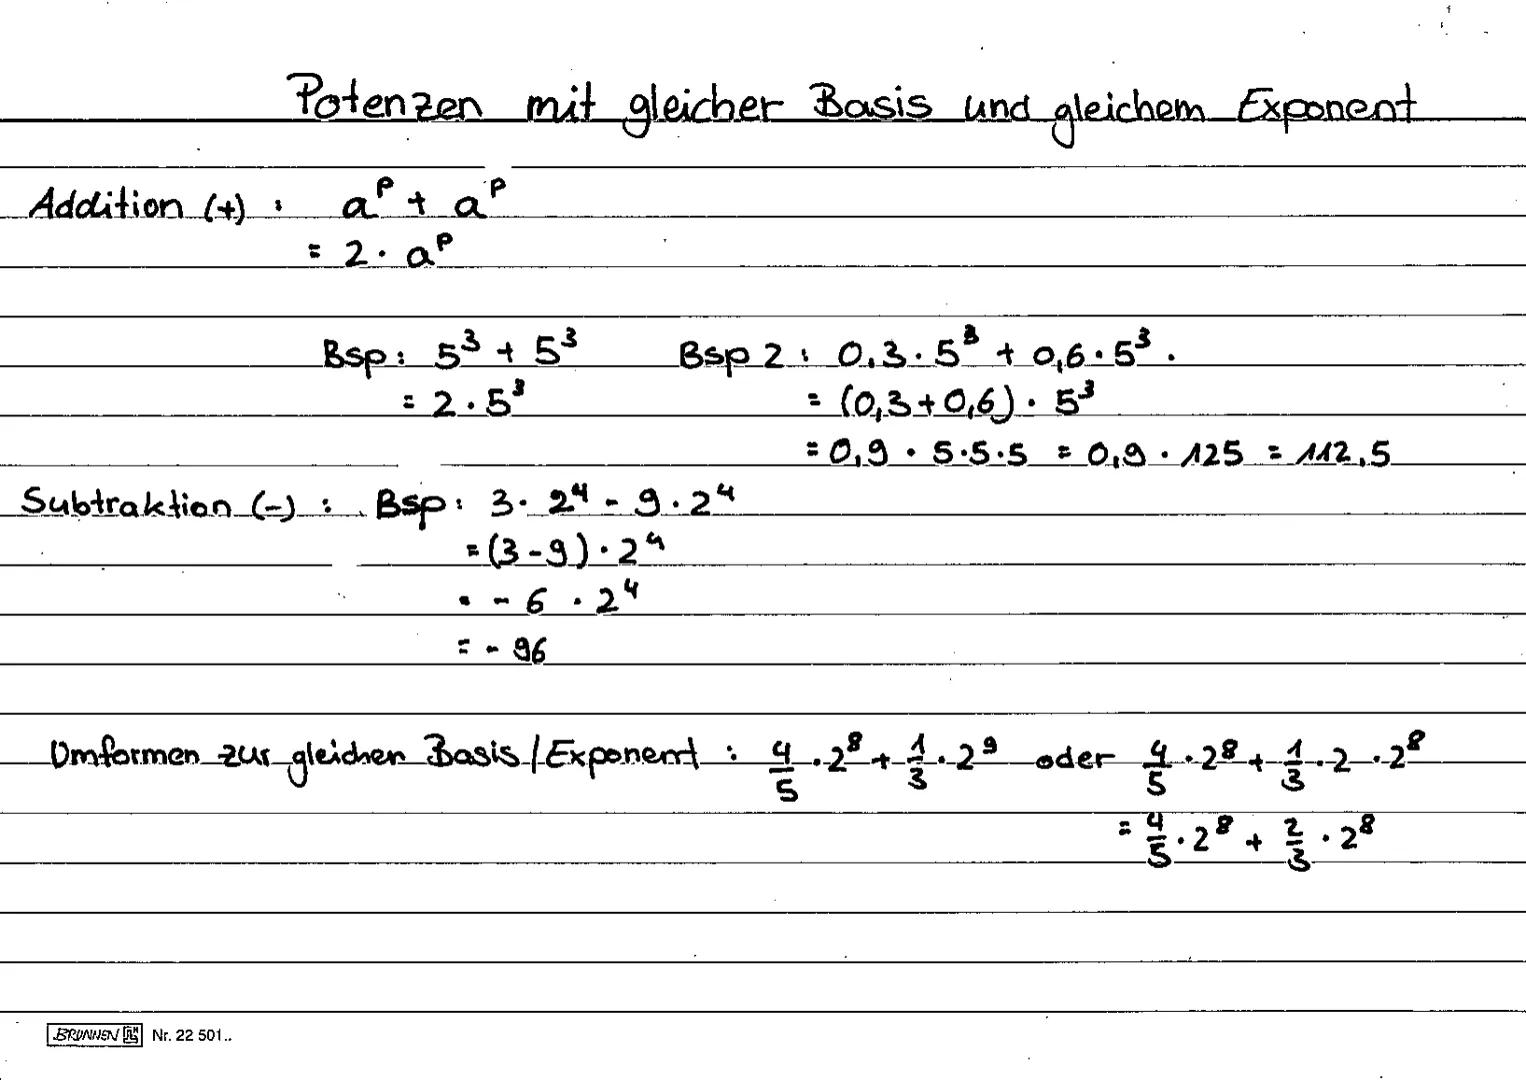 Potenzen mit gleicher Basis und gleichem Exponent
Addition (+) : a^p + a^p
= 2 · a^p
Bsp: 5³ + 5³ Bsp 2 : 0,3 · 5³ + 0,6 · 5³
= 2 · 5³ = (0,3 + 0,6) · 5³
= 0,9 · 5·5·5 = 0,9 · 125 = 112,5
Subtraktion (-) : Bsp: 3 · 2⁴ - 9 · 2⁴
= (3 - 9) · 2⁴
= - 6 · 2⁴
= - 96
Umformen zur gleichen Basis / Exponent : 4/5 · 2⁸ + 1/3 · 2⁹ oder 4/5 · 2⁸ + 1/3 · 2 · 2⁸
= 4/5 · 2⁸ + 2/3 · 2⁸
BRUNNEN Nr. 22 501..